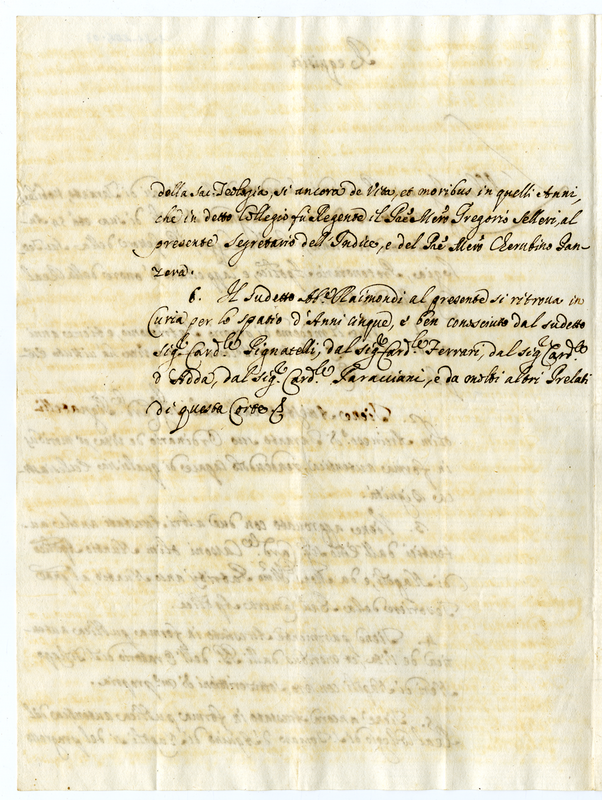 della Sac. Teologia, si ancora de Vita, et moribus in quelli Anni,
che in detto Collegio fù Regente il Pre Mro Gregorio Selleri, al
presente Segretario dell'Indice, e del Pre Mro Cherubino Zan-
zova.
6. Il sudetto Abe Raimondi al presente si ritrova in
Curia per lo spatio d'Anni cinque, e ben conosciuto dal sudetto
Sigr Cardle Pignatelli, dal Sigr Cardle Ferrari, dal Sigr Cardle
d'Adda, dal Sigr Cardle Paracciani, e da molti altri Prelati
di questa Corte &